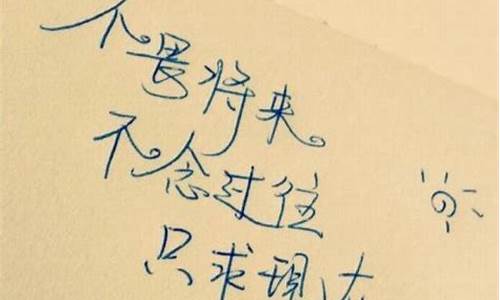 不畏将来。
不念过往
只求現